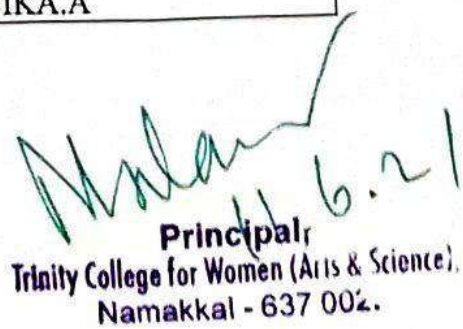 IKA.A
11.6.21
Principal,
Trinity College for Women (Arts & Science),
Namakkal - 637 002.